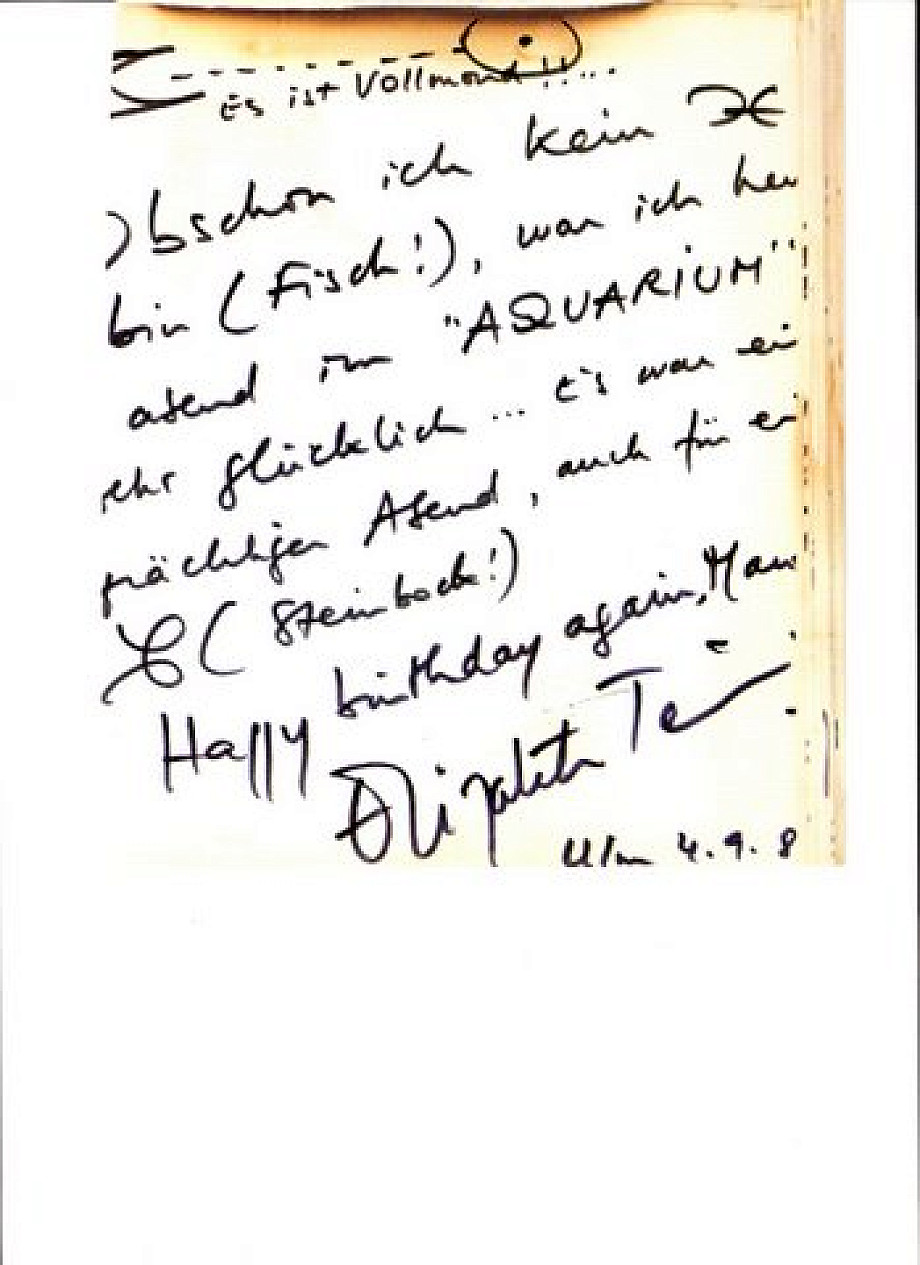 Es ist Vollmond!!....
Obschon ich kein ♓
bin (Fisch!), war ich heu
abend im "AQUARIUM"
sehr glücklich... Es war ein
prächtiger Abend, auch für ein
♑ (Steinbock!)
Happy birthday again, Man
Elizabeth Tei
Ulm 4.9.8